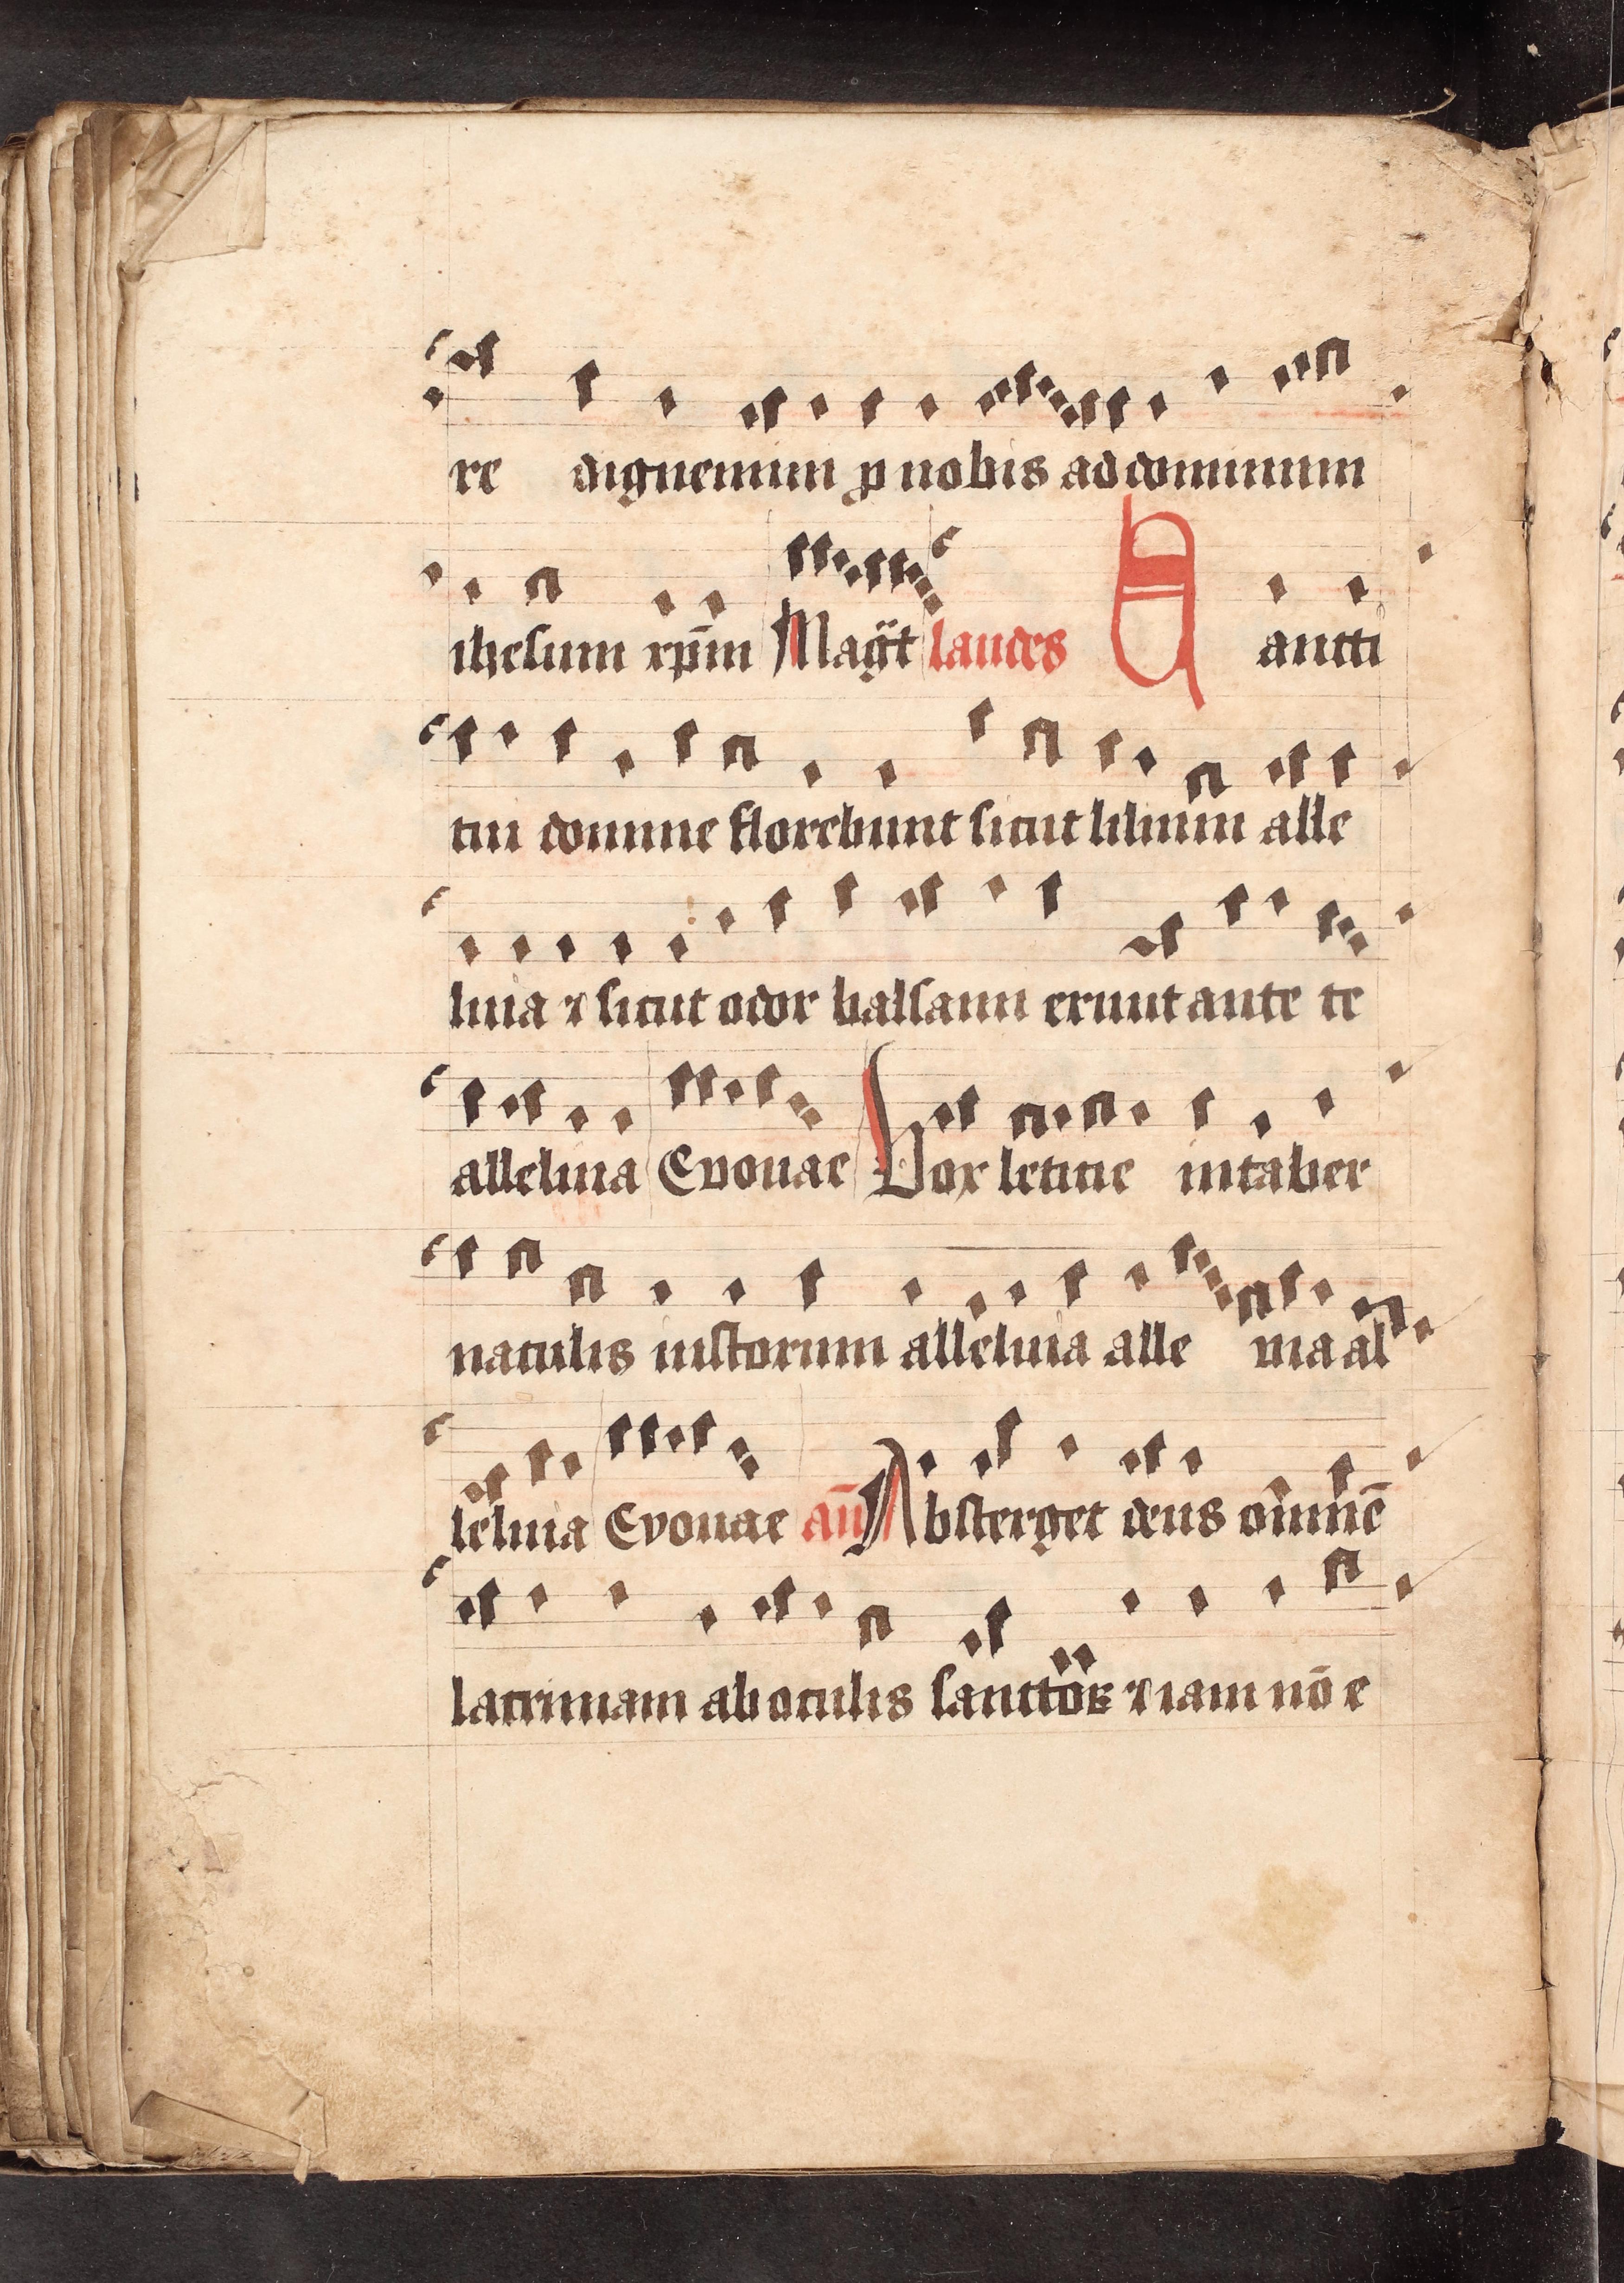 re dignemini ꝓ nobis ad dominum
ihesum xp̄m Magt̄ laudes S ancti
tui domine florebunt sicut lilium alle
luia ⁊ sicut odor balsami erunt ante te
alleluia Evouae Vox leticie in taber
naculis iustorum alleluia alle uia al
leluia Evouae an̄ Absterget deus om̄nē
lacrimam ab oculis sanctoꝝ ⁊ iam nō e